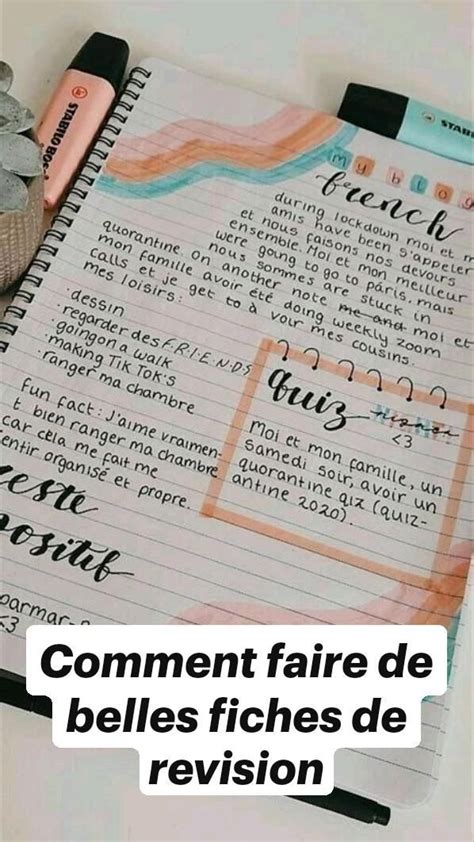 STABILO BOSS
STABI
my blog
french
during lockdown moi et m
amis have been s'appeler
et nous faisons nos devoirs
ensemble. Moi et mon meilleur
were going to go to paris, mais
nous sommes are stuck in
quorantine. on another note me and moi et
mon famille avoir été doing weekly zoom
calls et je get to à voir mes cousins.
mes loisirs:
·dessin
·regarder des F.R.I.E.N.D.S
·goingon a walk
·making TikTok's
·ranger ma chambre
fun fact: J'aime vraimen-
t bien ranger ma chambre
car cela me fait me
entir organisé et propre.
quiz
<3
Moi et mon famille, un
samedi soir, avoir un
quorantine qiz (quiz-
antine 2020).
este
ositif
parmar-
<3
Comment faire de
belles fiches de
revision